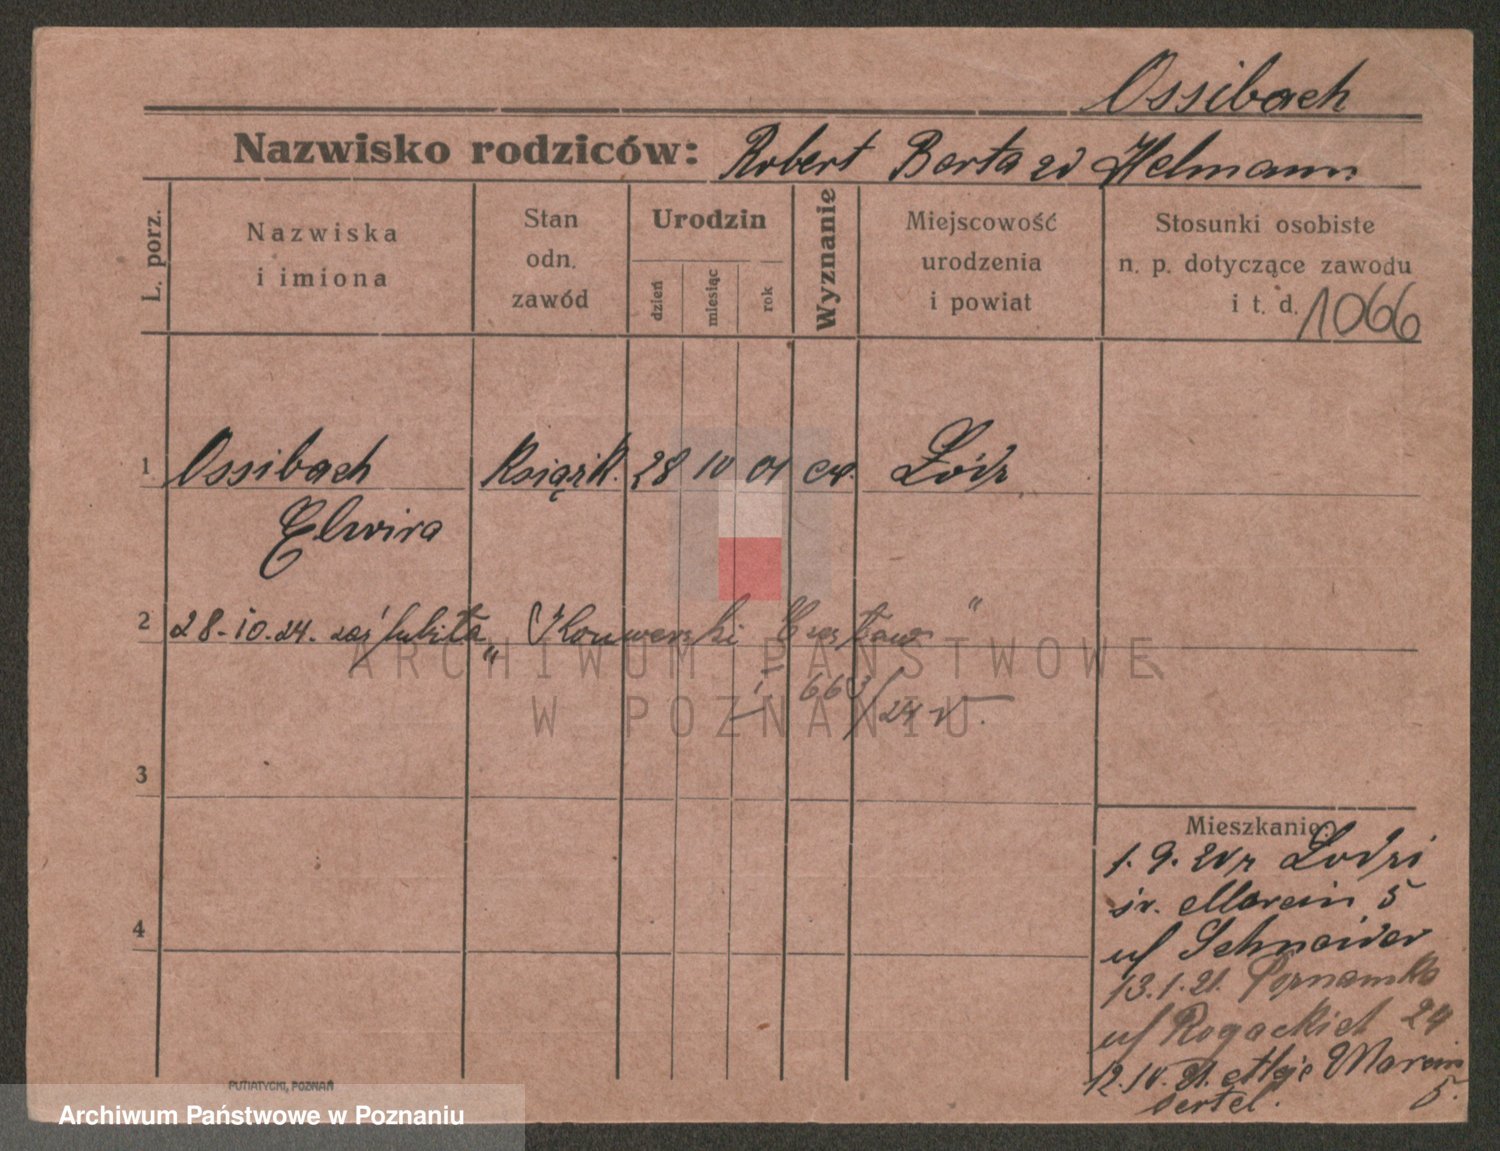 Ossibach
Nazwisko rodziców: Robert Berta zd Helmann
L. porz.
Nazwiska
i imiona
Stan
odn.
zawód
Urodzin
dzień
miesiąc
rok
Wyznanie
Miejscowość
urodzenia
i powiat
Stosunki osobiste
n. p. dotyczące zawodu
i t. d. 1066
1 Ossibach Książk. 28 10 01 ew. Łódz
Elwira
2 28-10-24. zaślubiła
" "
663/24 V.
ARCHIWUM PAŃSTWOWE
W POZNANIU
3
4
Mieszkanie:
1. 9. 20 z Lodzi
św. Marcin 5
u/ Schneider
13.1.21. Poznańska
u/ Rogackich 24
12. IV. 21. Aleje Marcin
Oertel. 5.
PUTIATYCKI, POZNAŃ
Archiwum Państwowe w Poznaniu